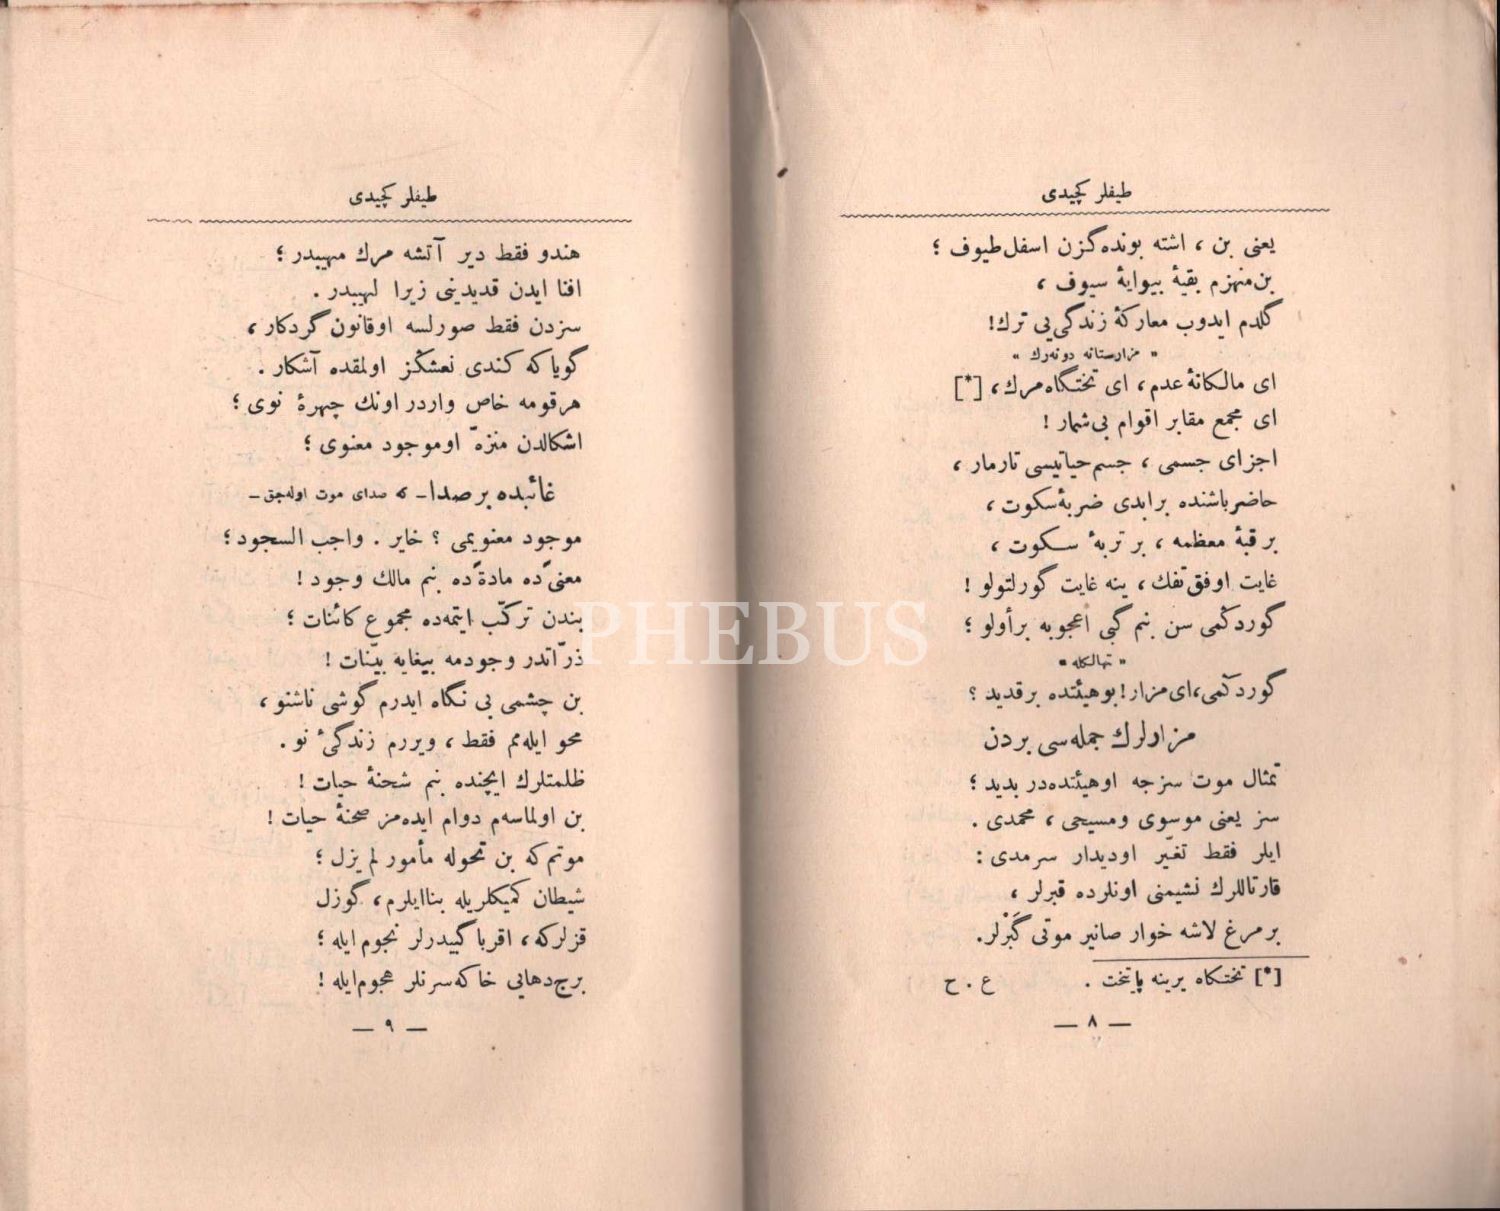 طیفلر كچیدی
یعنی بن ، اشته بونده گزن اسفل طیوف ؛
بن منهزم بقیهٔ بیوایهٔ سیوف ،
گلدم ایدوب معاركهٔ زندگی یی ترك!
« مزارستانه دونه‌رك »
ای مالكانهٔ عدم ، ای تختگاه مرك ، [*]
ای مجمع مقابر اقوام بی شمار !
اجزای جسمی ، جسم حیاتیسی تارمار ،
حاضر باشنده بر ابدی ضربهٔ سكوت ،
بر قبهٔ معظمه ، بر تربهٔ سكوت ،
غایت اوفق تفك ، ینه غایت گورلتولو !
گوردكمی سن بنم گبی اعجوبه بر أولو ؛
« تهالكله »
گوردكمی ، ای مزار ! بو هیئتده بر قدید ؟
مزاولرك جمله‌سی بردن
تمثال موت سزجه او هیئتده‌در بدید ؛
سز یعنی موسوی و مسیحی ، محمدی .
ایلر فقط تغیّر او دیدار سرمدی :
قارتاللرك نشیمنی اونلرده قبرلر ،
بر مرغ لاشه خوار صانیر موتی گَبْرلر .
[*] تختكاه یرینه پایتخت . ع . ح
— ٨ —
طیفلر كچیدی
هندو فقط دیر آتشه مرك مهیبدر ؛
افنا ایدن قدیدینی زیرا لهیبدر .
سزدن فقط صورلسه او قانون گردكار ،
گویا كه كندی نعشڭز اولمقده آشكار .
هر قومه خاص واردر اونك چهرهٔ نوی ؛
اشكالدن منزهّ او موجود معنوی ؛
غائبده بر صدا ـ كه صدای موت اوله‌جق ـ
موجود معنویمی ؟ خایر . واجب السجود ؛
معنیً ده مادةً ده بنم مالك وجود !
بندن تركّب ایتمه‌ده مجموع كائنات ؛
ذرّاتدر وجودمه بیغایه بیّنات !
بن چشمی بی نگاه ایدرم گوشی ناشنو ،
محو ایله‌مم فقط ، ویررم زندگیٔ نو .
ظلمتلرك ایچنده بنم شحنهٔ حیات !
بن اولماسه‌م دوام ایده‌مز صحنهٔ حیات !
موتم كه بن تحوله مأمور لم یزل ؛
شیطان كمیكلریله بنا ایلرم ، گوزل
قزلركه ، اقربا گیدرلر نجوم ایله ؛
برج دهایی خاكه سرنلر هجوم ایله !
— ٩ —
PHEBUS